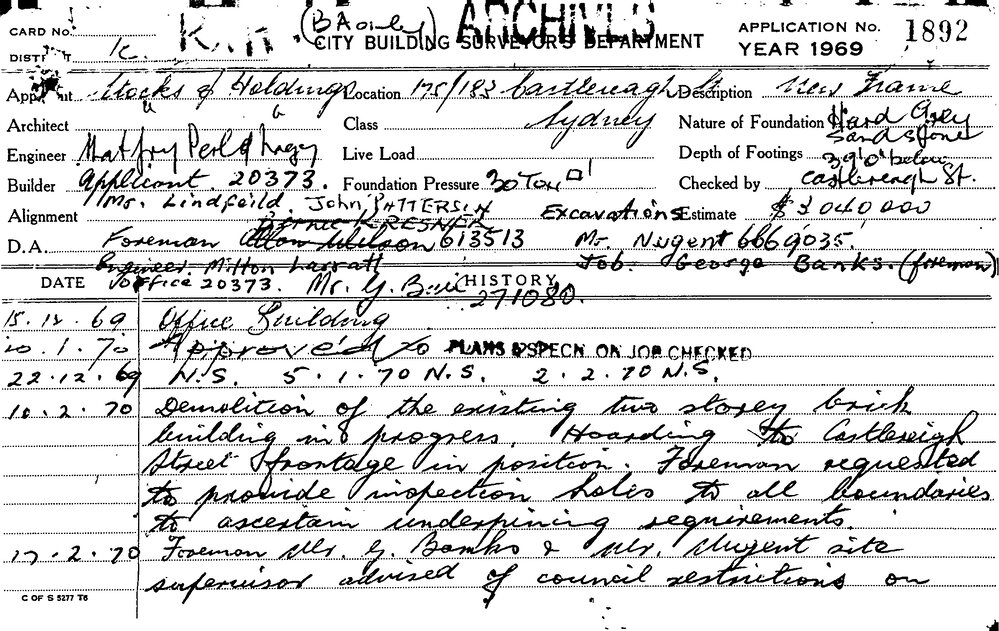 ARCHIVES
CARD No. K. R. (B A
CITY BUILDING SURVEYOR'S DEPARTMENT
APPLICATION No. 1892
DISTRICT K.
YEAR 1969
Applicant Stocks & Holdings Location 175/183 Castlereagh St Description New Frame
Architect Class Sydney Nature of Foundation Hard Grey
Sandstone
Engineer Matfry Perl & Nagy Live Load Depth of Footings 39'0" below
Castlereagh St.
Builder Applicant 20373. Foundation Pressure 30 Ton □' Checked by
Mr. Lindfeild. John PATTERSIN Excavations Estimate $3 040 000
Alignment
D.A. Foreman 613513 Mr. Nugent 6669035.
Engineer. Milton Larratt Job. George Banks. (foreman)
DATE Office 20373. Mr. G. HISTORY
271080.
15.12.69 Office Building
20.1.70 Approved PLANS & SPECN. ON JOB CHECKED
22.12.69 N.S. 5.1.70 N.S. 2.2.70 N.S.
10.2.70 Demolition of the existing two storey brick
building in progress. Hoarding to Castlereigh
Street frontage in position. Foreman requested
to provide inspection holes to all boundaries
to ascertain underpining requirements.
17.2.70 Foreman Mr. G. Banks & Mr. Nugent site
supervisor advised of council restrictions on
C OF S 5277 T6